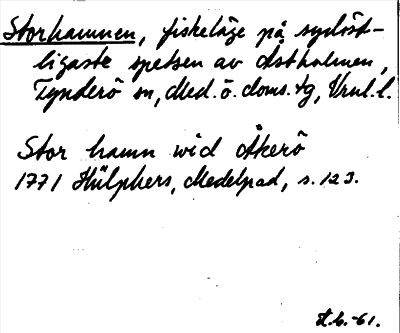 Storhamnen, fiskeläge på sydöst-
ligaste spetsen av Åstholmen,
Tynderö sn, Med. ö. doms. tg, Vrnl. l.
Stor hamn wid Åkerö
1771 Hülphers, Medelpad, s. 123.
-61.